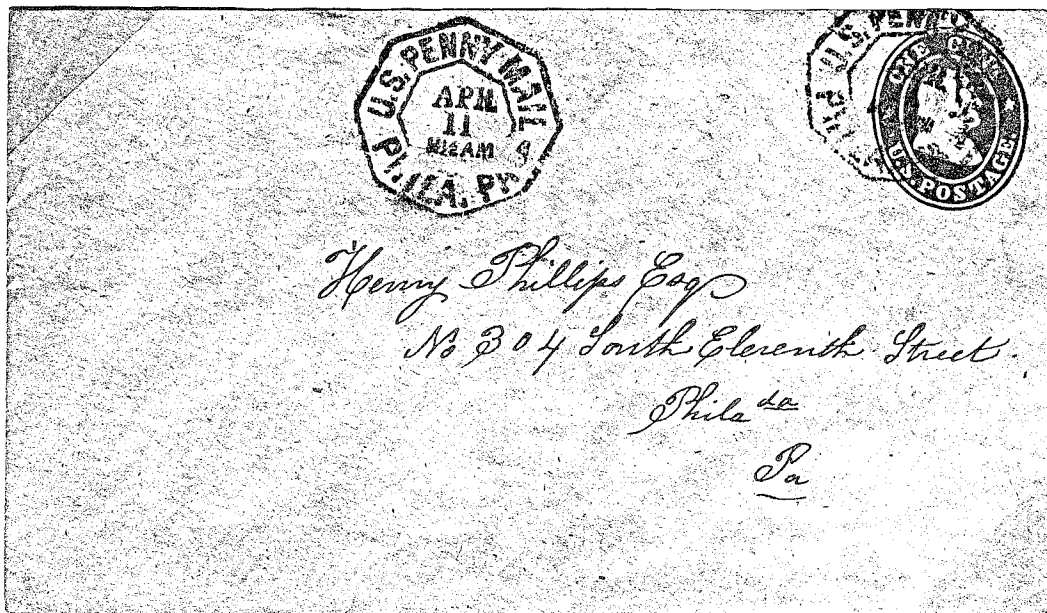 U.S. PENNY MAIL
APR
11
PHILA. PA
U.S. PENNY
ONE CENT
U.S. POSTAGE
Henry Phillips Esq
No 304 South Eleventh Street.
Phila da
Pa